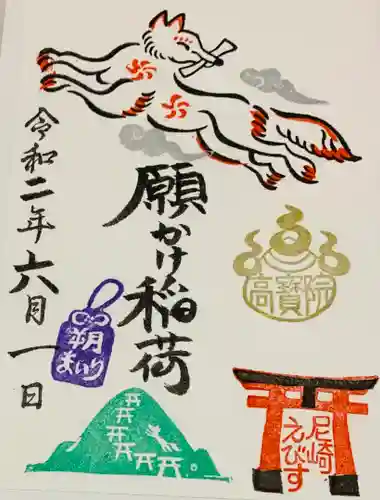 願かけ稲荷
令和二年六月一日
朔
まいり
高寳院
尼崎
えびす